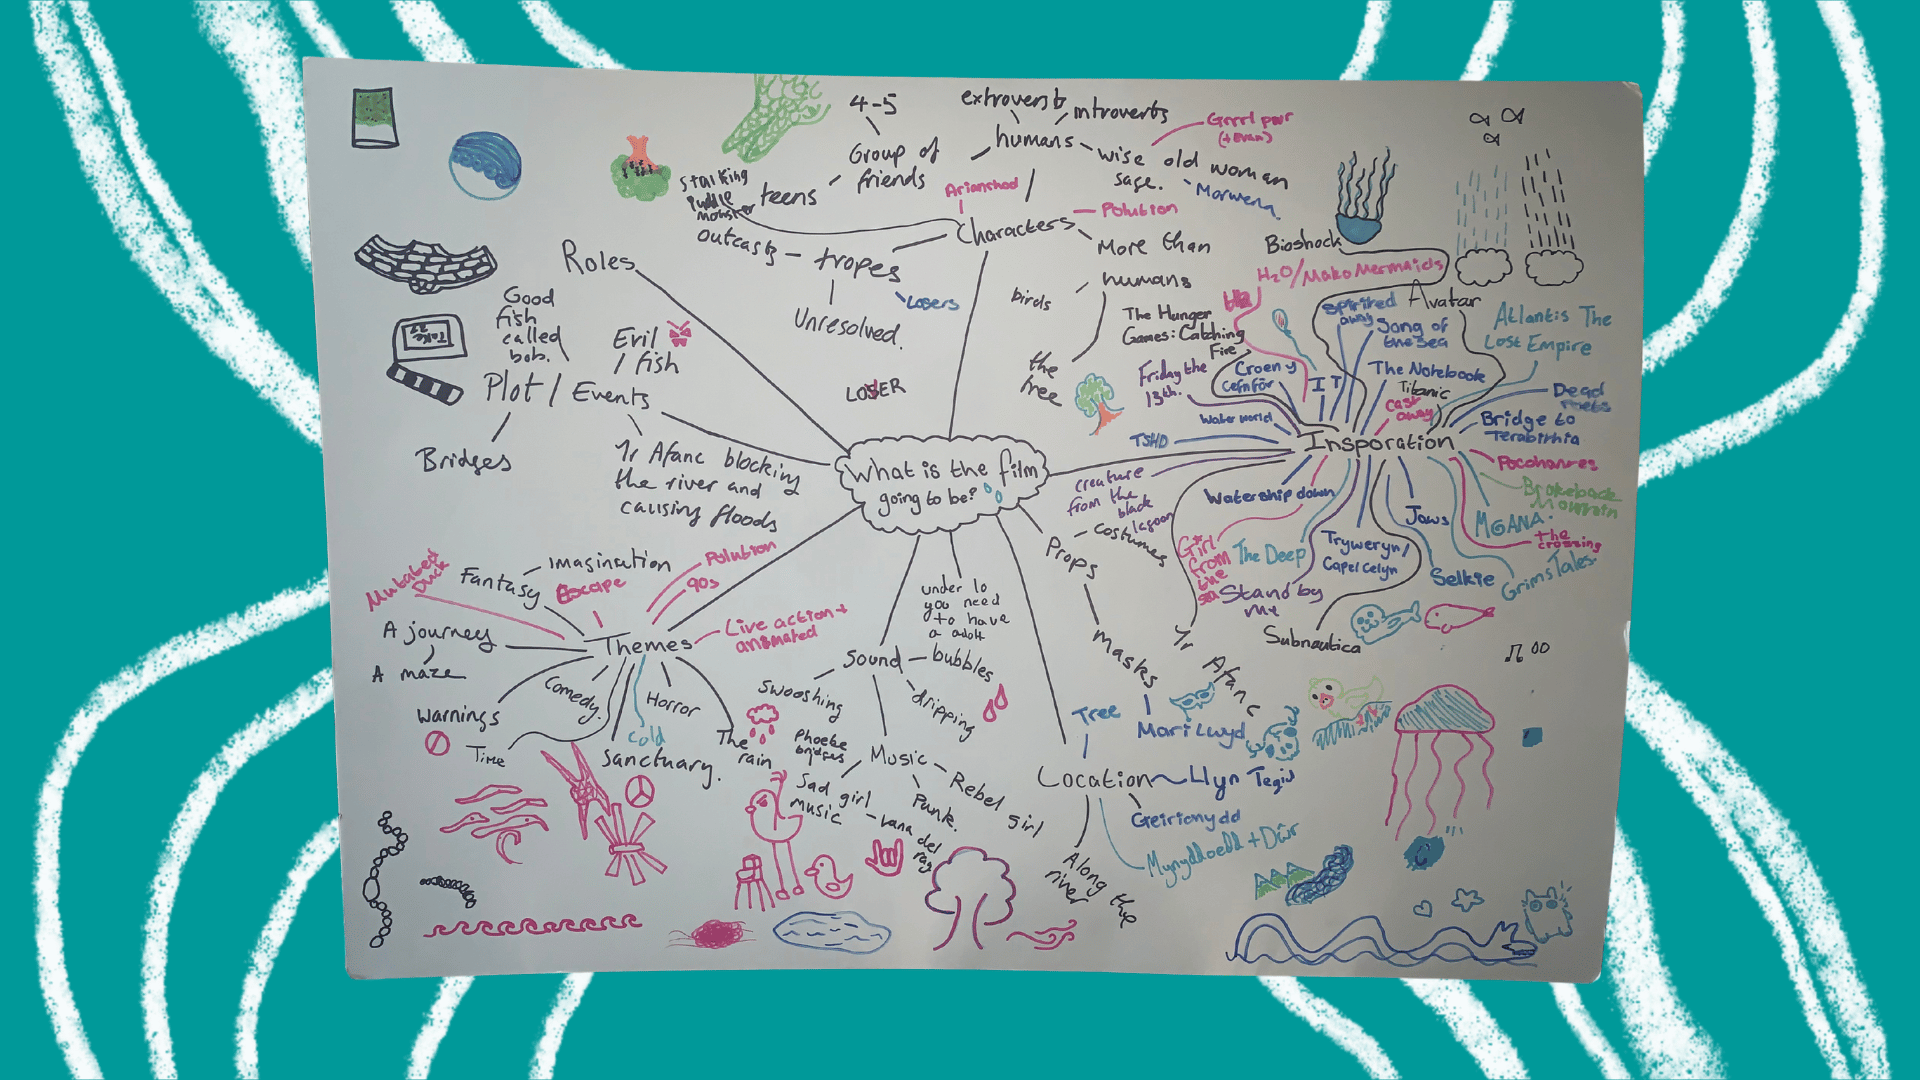 What is the film
going to be?
Roles
Plot / Events
Good
fish
called
bob.
Evil
fish
Bridges
Yr Afanc blocking
the river and
causing floods
LOSER
Take
Characters
Arianrhod
Polution
stalking
puddle
monster
tropes
outcasts
Losers
Unresolved.
humans
extroverts
introverts
Grrrl pwr
(+ Evan)
wise old woman
sage.
Morwena
Group of
friends
4-5
teens
More than
humans
birds
the
tree
Insporation
Bioshock
H2O/Mako Mermaids
Spirited
away
Avatar
Song of
the sea
Atlantis The
Lost Empire
The Hunger
Games: Catching
Fire
Friday the
13th.
Croen y
Cefnfor
IT
The Notebook
Titanic
Cast
away
Dead
Poets
Bridge to
Terabithia
Water world
TSHD
creature
from the
black
lagoon
Watership down
Girl
from
the
sea
The Deep
Stand by
me
Tryweryn/
Capel Celyn
Jaws
Selkie
Subnautica
Pocohontes
Brokeback
Mountain
MGANA
the
crossing
Grims Tales
Yr Afanc
Props
costumes
masks
Mari Lwyd
Location
Tree
Llyn Tegid
Geirionydd
Mynyddoedd + Dŵr
Along the
river
under 10
you need
to have
a adolt
Sound
bubbles
dripping
swooshing
Music
Phoebe
bridges
Sad girl
music
Lana del
ray
Punk.
Rebel girl
Themes
Mutated
Duck
Fantasy
Imagination
Escape
Polution
90s
Live action +
animated
A journey
A maze
Warnings
Time
Comedy.
Sanctuary.
cold
Horror
The
rain